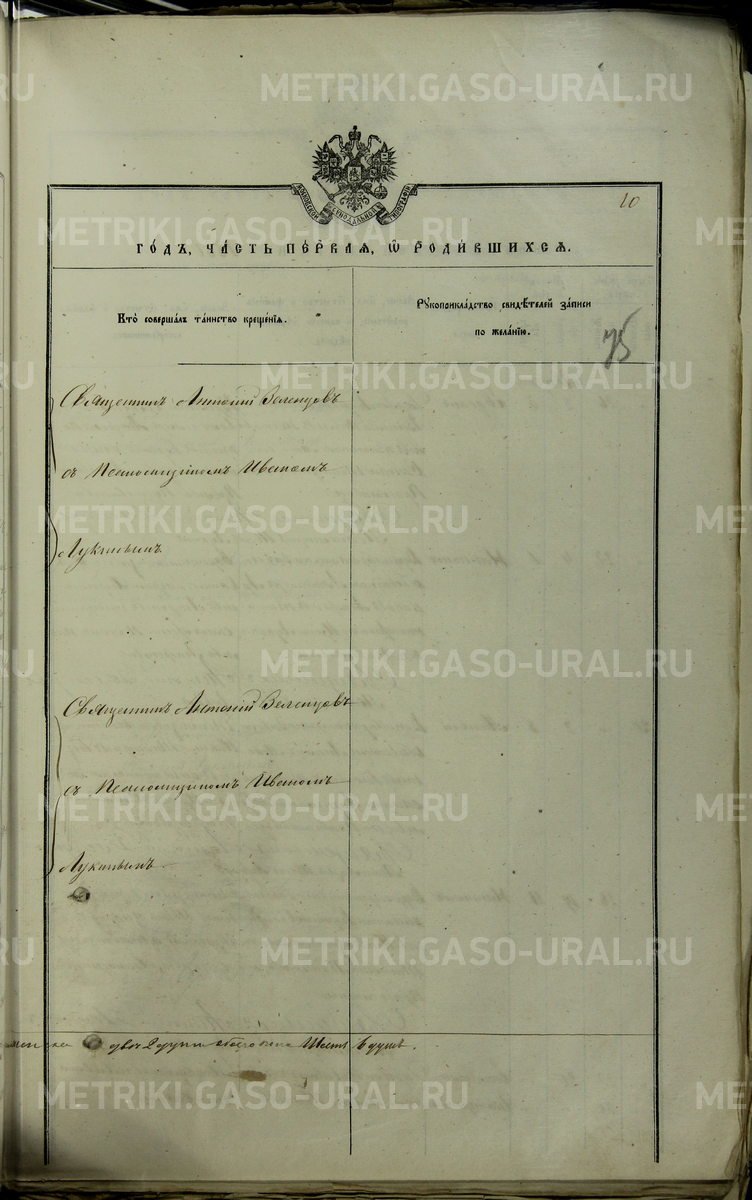 METRIKI.GASO-URAL.RU
20
METRIKI.GASO-URAL.RU
го́дъ, ча́сть пе́рваѧ, ѽ роди́вшихсѧ.
Кто̀ соверша́лъ та́инство креще́нїѧ.
Рꙋкоприкла́дство свидѣ́телей за́писи
по жела́нїю.
75
METRIKI.GASO-URAL.RU
Священникъ Антоній Зеленцовъ
съ Псаломщикомъ Иваномъ
METRIKI.GASO-URAL.RU
Лукинымъ
METRIKI.GASO-URAL.RU
Священникъ Антоній Зеленцовъ
съ Псаломщикомъ Иваномъ
METRIKI.GASO-URAL.RU
Лукинымъ.
METRIKI.GASO-URAL.RU
двѣ 2 души обоего пола Шесть 6 душъ.
METRIKI.GASO-URAL.RU